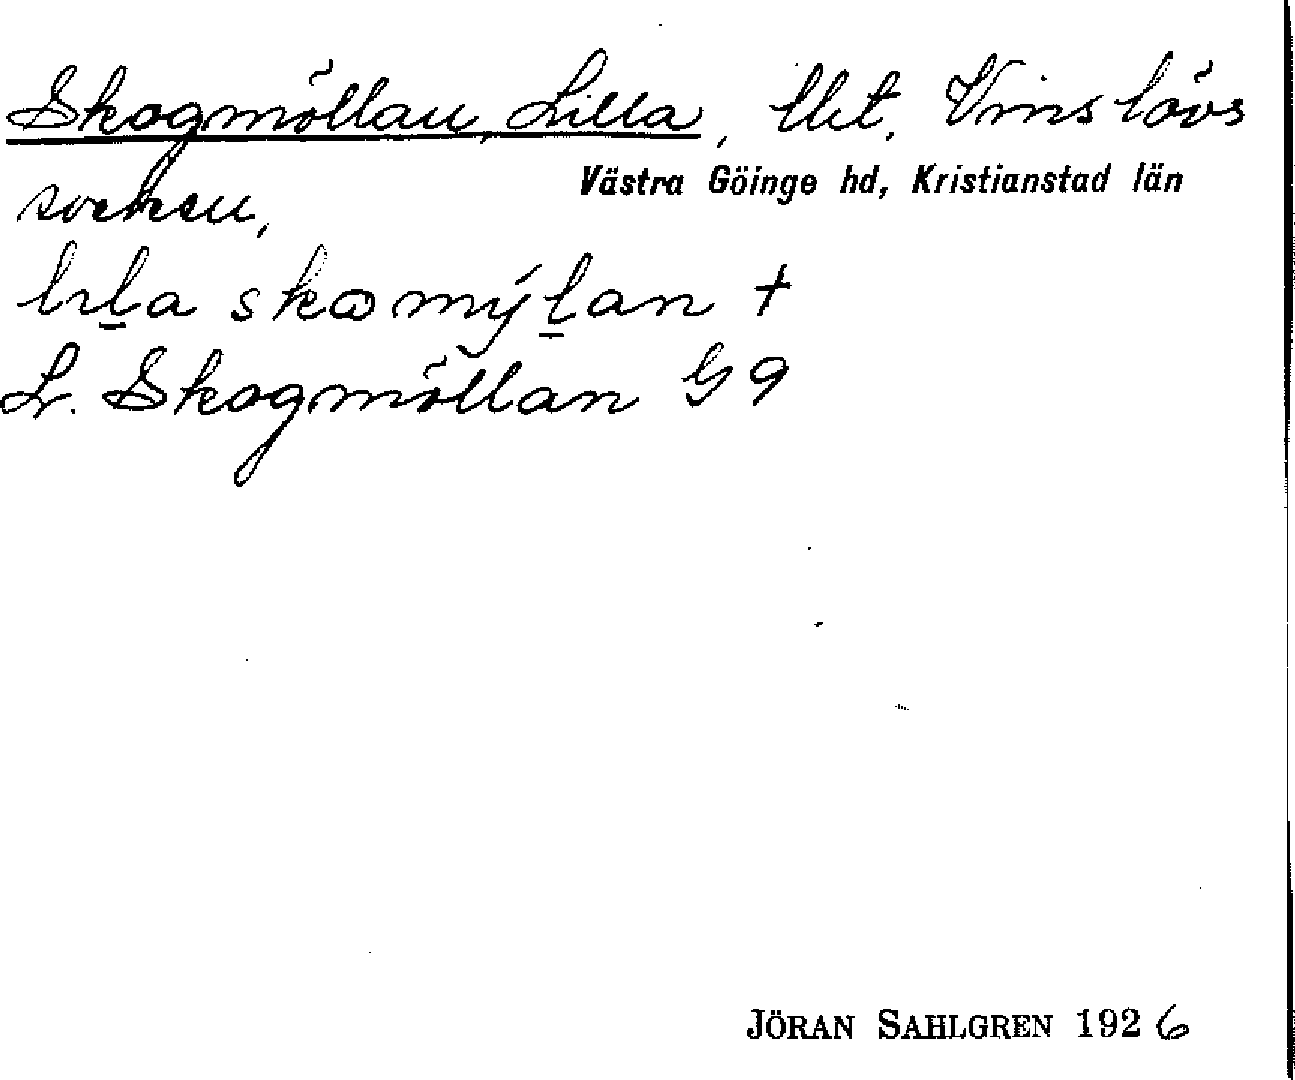 Skogmöllan, Lilla, lht, Vinslövs
socken,
Västra Göinge hd, Kristianstad län
lıl̲a skɷmýl̲an +
L. Skogmöllan G9
JÖRAN SAHLGREN 1926